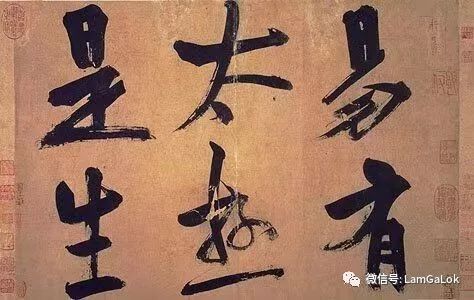 易有
太極
是生
微信号: LamGaLok